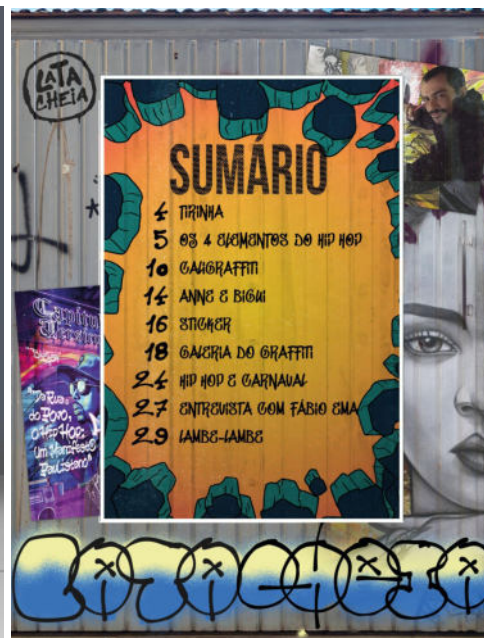 LATA
CHEIA
SUMÁRIO
4 TIRINHA
5 OS 4 ELEMENTOS DO HIP HOP
10 CALIGRAFFITI
14 ANNE E BIGUI
16 STICKER
18 GALERIA DO GRAFFITI
24 HIP HOP E CARNAVAL
27 ENTREVISTA COM FÁBIO EMA
29 LAMBE-LAMBE
Da Rua
ao Povo,
O Hip Hop:
Um Manifesto
Paulistano"